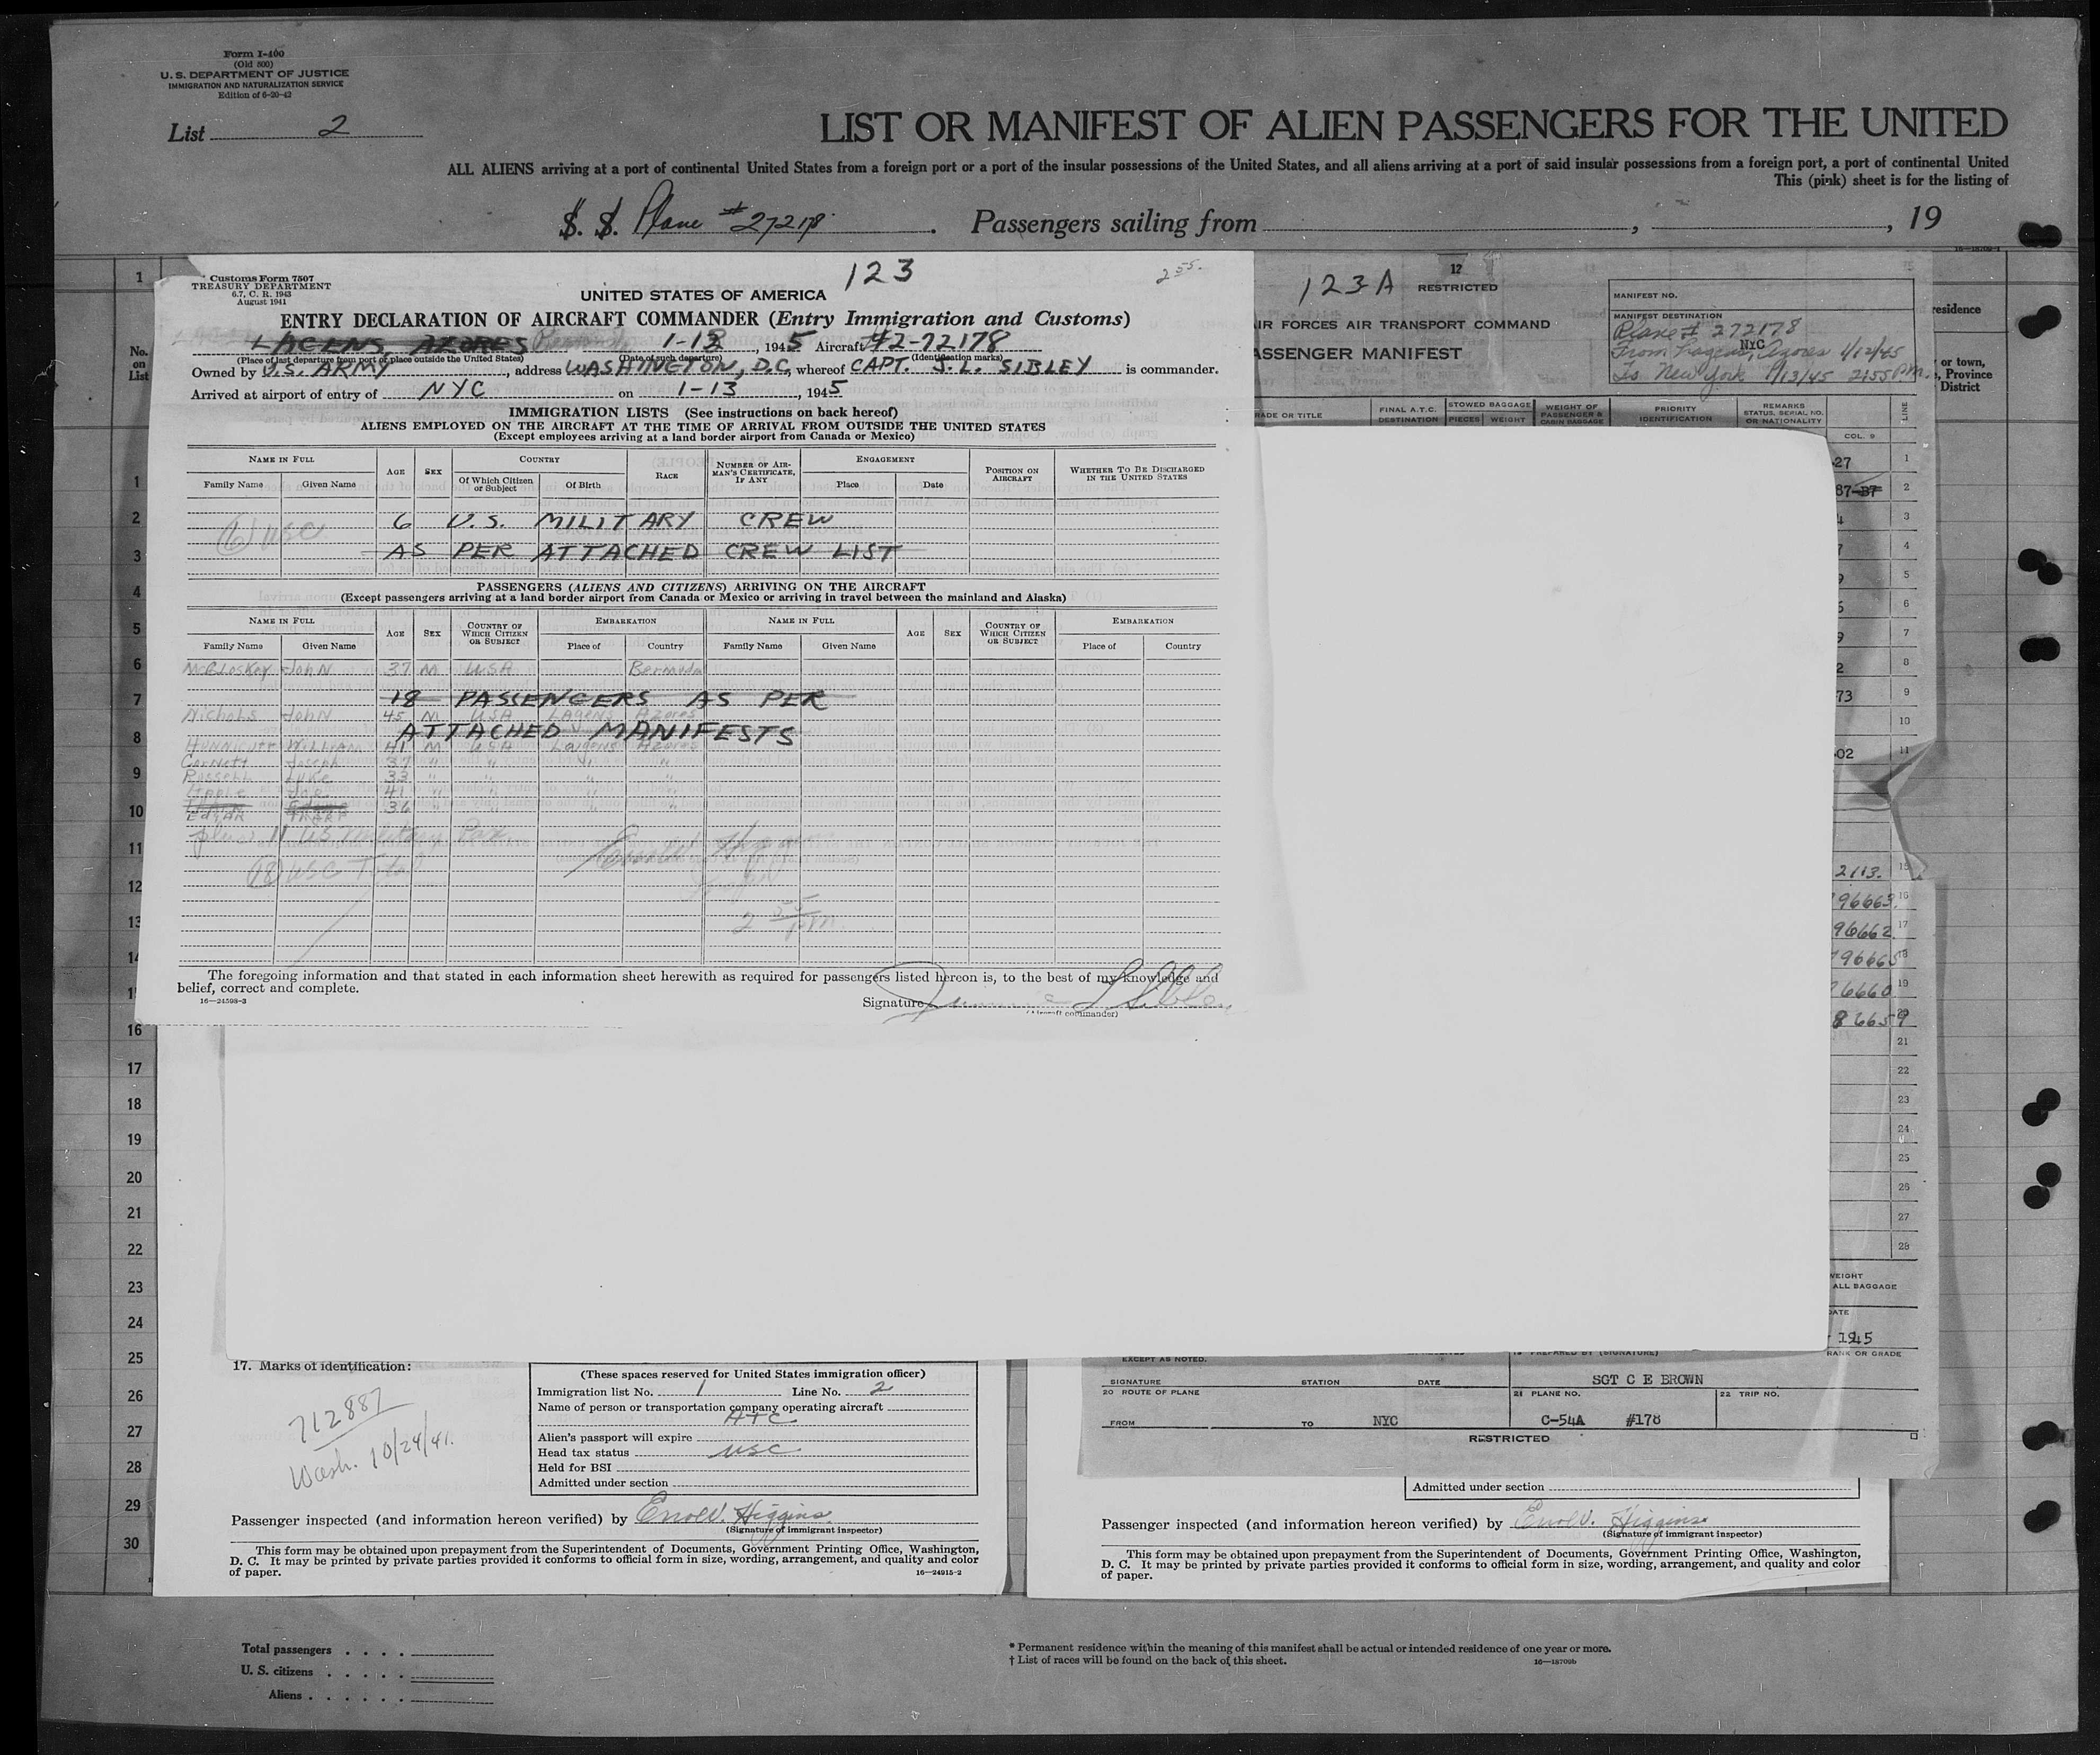 Form I-400
(Old 500)
U. S. DEPARTMENT OF JUSTICE
IMMIGRATION AND NATURALIZATION SERVICE
Edition of 6-20-42
List 2
LIST OR MANIFEST OF ALIEN PASSENGERS FOR THE UNITED
ALL ALIENS arriving at a port of continental United States from a foreign port or a port of the insular possessions of the United States, and all aliens arriving at a port of said insular possessions from a foreign port, a port of continental United
This (pink) sheet is for the listing of
S. S. Plane #272178. Passengers sailing from , , 19
Customs Form 7507
TREASURY DEPARTMENT
6.7, C. R. 1943
August 1941
123
2 55
UNITED STATES OF AMERICA
ENTRY DECLARATION OF AIRCRAFT COMMANDER (Entry Immigration and Customs)
LAGENS, AZORES 1-12, 1945 Aircraft 42-72178
(Place of last departure from port or place outside the United States) (Date of such departure) (Identification marks)
Owned by U.S. ARMY, address WASHINGTON, D.C, whereof CAPT. J. L. SIBLEY is commander.
Arrived at airport of entry of NYC on 1-13, 1945
IMMIGRATION LISTS (See instructions on back hereof)
ALIENS EMPLOYED ON THE AIRCRAFT AT THE TIME OF ARRIVAL FROM OUTSIDE THE UNITED STATES
(Except employees arriving at a land border airport from Canada or Mexico)
NAME IN FULL AGE SEX COUNTRY RACE NUMBER OF AIRMAN'S CERTIFICATE, IF ANY ENGAGEMENT POSITION ON AIRCRAFT WHETHER TO BE DISCHARGED IN THE UNITED STATES
Family Name Given Name Of Which Citizen or Subject Of Birth Place Date
(6) USC 6 U.S. MILITARY CREW
AS PER ATTACHED CREW LIST
PASSENGERS (ALIENS AND CITIZENS) ARRIVING ON THE AIRCRAFT
(Except passengers arriving at a land border airport from Canada or Mexico or arriving in travel between the mainland and Alaska)
NAME IN FULL AGE SEX COUNTRY OF WHICH CITIZEN OR SUBJECT EMBARKATION NAME IN FULL AGE SEX COUNTRY OF WHICH CITIZEN OR SUBJECT EMBARKATION
Family Name Given Name Place of Country Family Name Given Name Place of Country
McCloskey John 37 M USA Bermuda
18 PASSENGERS AS PER
Nichols John 45 M USA Lagens Azores
ATTACHED MANIFESTS
Hunnicutt William 41 M USA Lagens Azores
Cornett Joseph 37 " " " "
Russell Luke 33 " " " "
41 " " " "
36 " " " "
plus 11 US Military Pax
(18) USC Total
2 55 pm
The foregoing information and that stated in each information sheet herewith as required for passengers listed hereon is, to the best of my knowledge and
belief, correct and complete.
16—24598-3
Signature
(Aircraft commander)
123A
12
RESTRICTED
IR FORCES AIR TRANSPORT COMMAND
ASSENGER MANIFEST
MANIFEST NO.
MANIFEST DESTINATION
Plane # 272178
NYC
From Lagens, Azores 1/12/45
To New York 1/13/45 2:55 P.M.
residence
or town,
, Province
District
ADE OR TITLE FINAL A.T.C. DESTINATION STOWED BAGGAGE PIECES WEIGHT WEIGHT OF PASSENGER & CABIN BAGGAGE PRIORITY IDENTIFICATION REMARKS STATUS, SERIAL NO. OR NATIONALITY LINE
COL. 9
27 1
2
3
4
5
6
7
8
73 9
10
02 11
2113. 15
96663. 16
96662 17
18
6660 19
86659
21
22
23
24
25
26
27
28
WEIGHT
ALL BAGGAGE
DATE
1945
RANK OR GRADE
EXCEPT AS NOTED.
PREPARED BY (SIGNATURE)
SIGNATURE STATION DATE SGT C E BROWN
20 ROUTE OF PLANE 21 PLANE NO. 22 TRIP NO.
FROM TO NYC C-54A #178
RESTRICTED
No.
on
List
1
1
2
3
4
5
6
7
8
9
10
11
12
13
14
15
16
17
18
19
20
21
22
23
24
25
26
27
28
29
30
17. Marks of identification:
712887
Wash. 10/24/41.
(These spaces reserved for United States immigration officer)
Immigration list No. 1 Line No. 2
Name of person or transportation company operating aircraft
ATC
Alien's passport will expire
Head tax status USC
Held for BSI
Admitted under section
Passenger inspected (and information hereon verified) by Errol V. Higgins.
(Signature of immigrant inspector)
This form may be obtained upon prepayment from the Superintendent of Documents, Government Printing Office, Washington,
D. C. It may be printed by private parties provided it conforms to official form in size, wording, arrangement, and quality and color
of paper.
16—24915-2
Admitted under section
Passenger inspected (and information hereon verified) by Errol V. Higgins
(Signature of immigrant inspector)
This form may be obtained upon prepayment from the Superintendent of Documents, Government Printing Office, Washington,
D. C. It may be printed by private parties provided it conforms to official form in size, wording, arrangement, and quality and color
of paper.
Total passengers
U. S. citizens
Aliens
* Permanent residence within the meaning of this manifest shall be actual or intended residence of one year or more.
† List of races will be found on the back of this sheet.
16—18709b